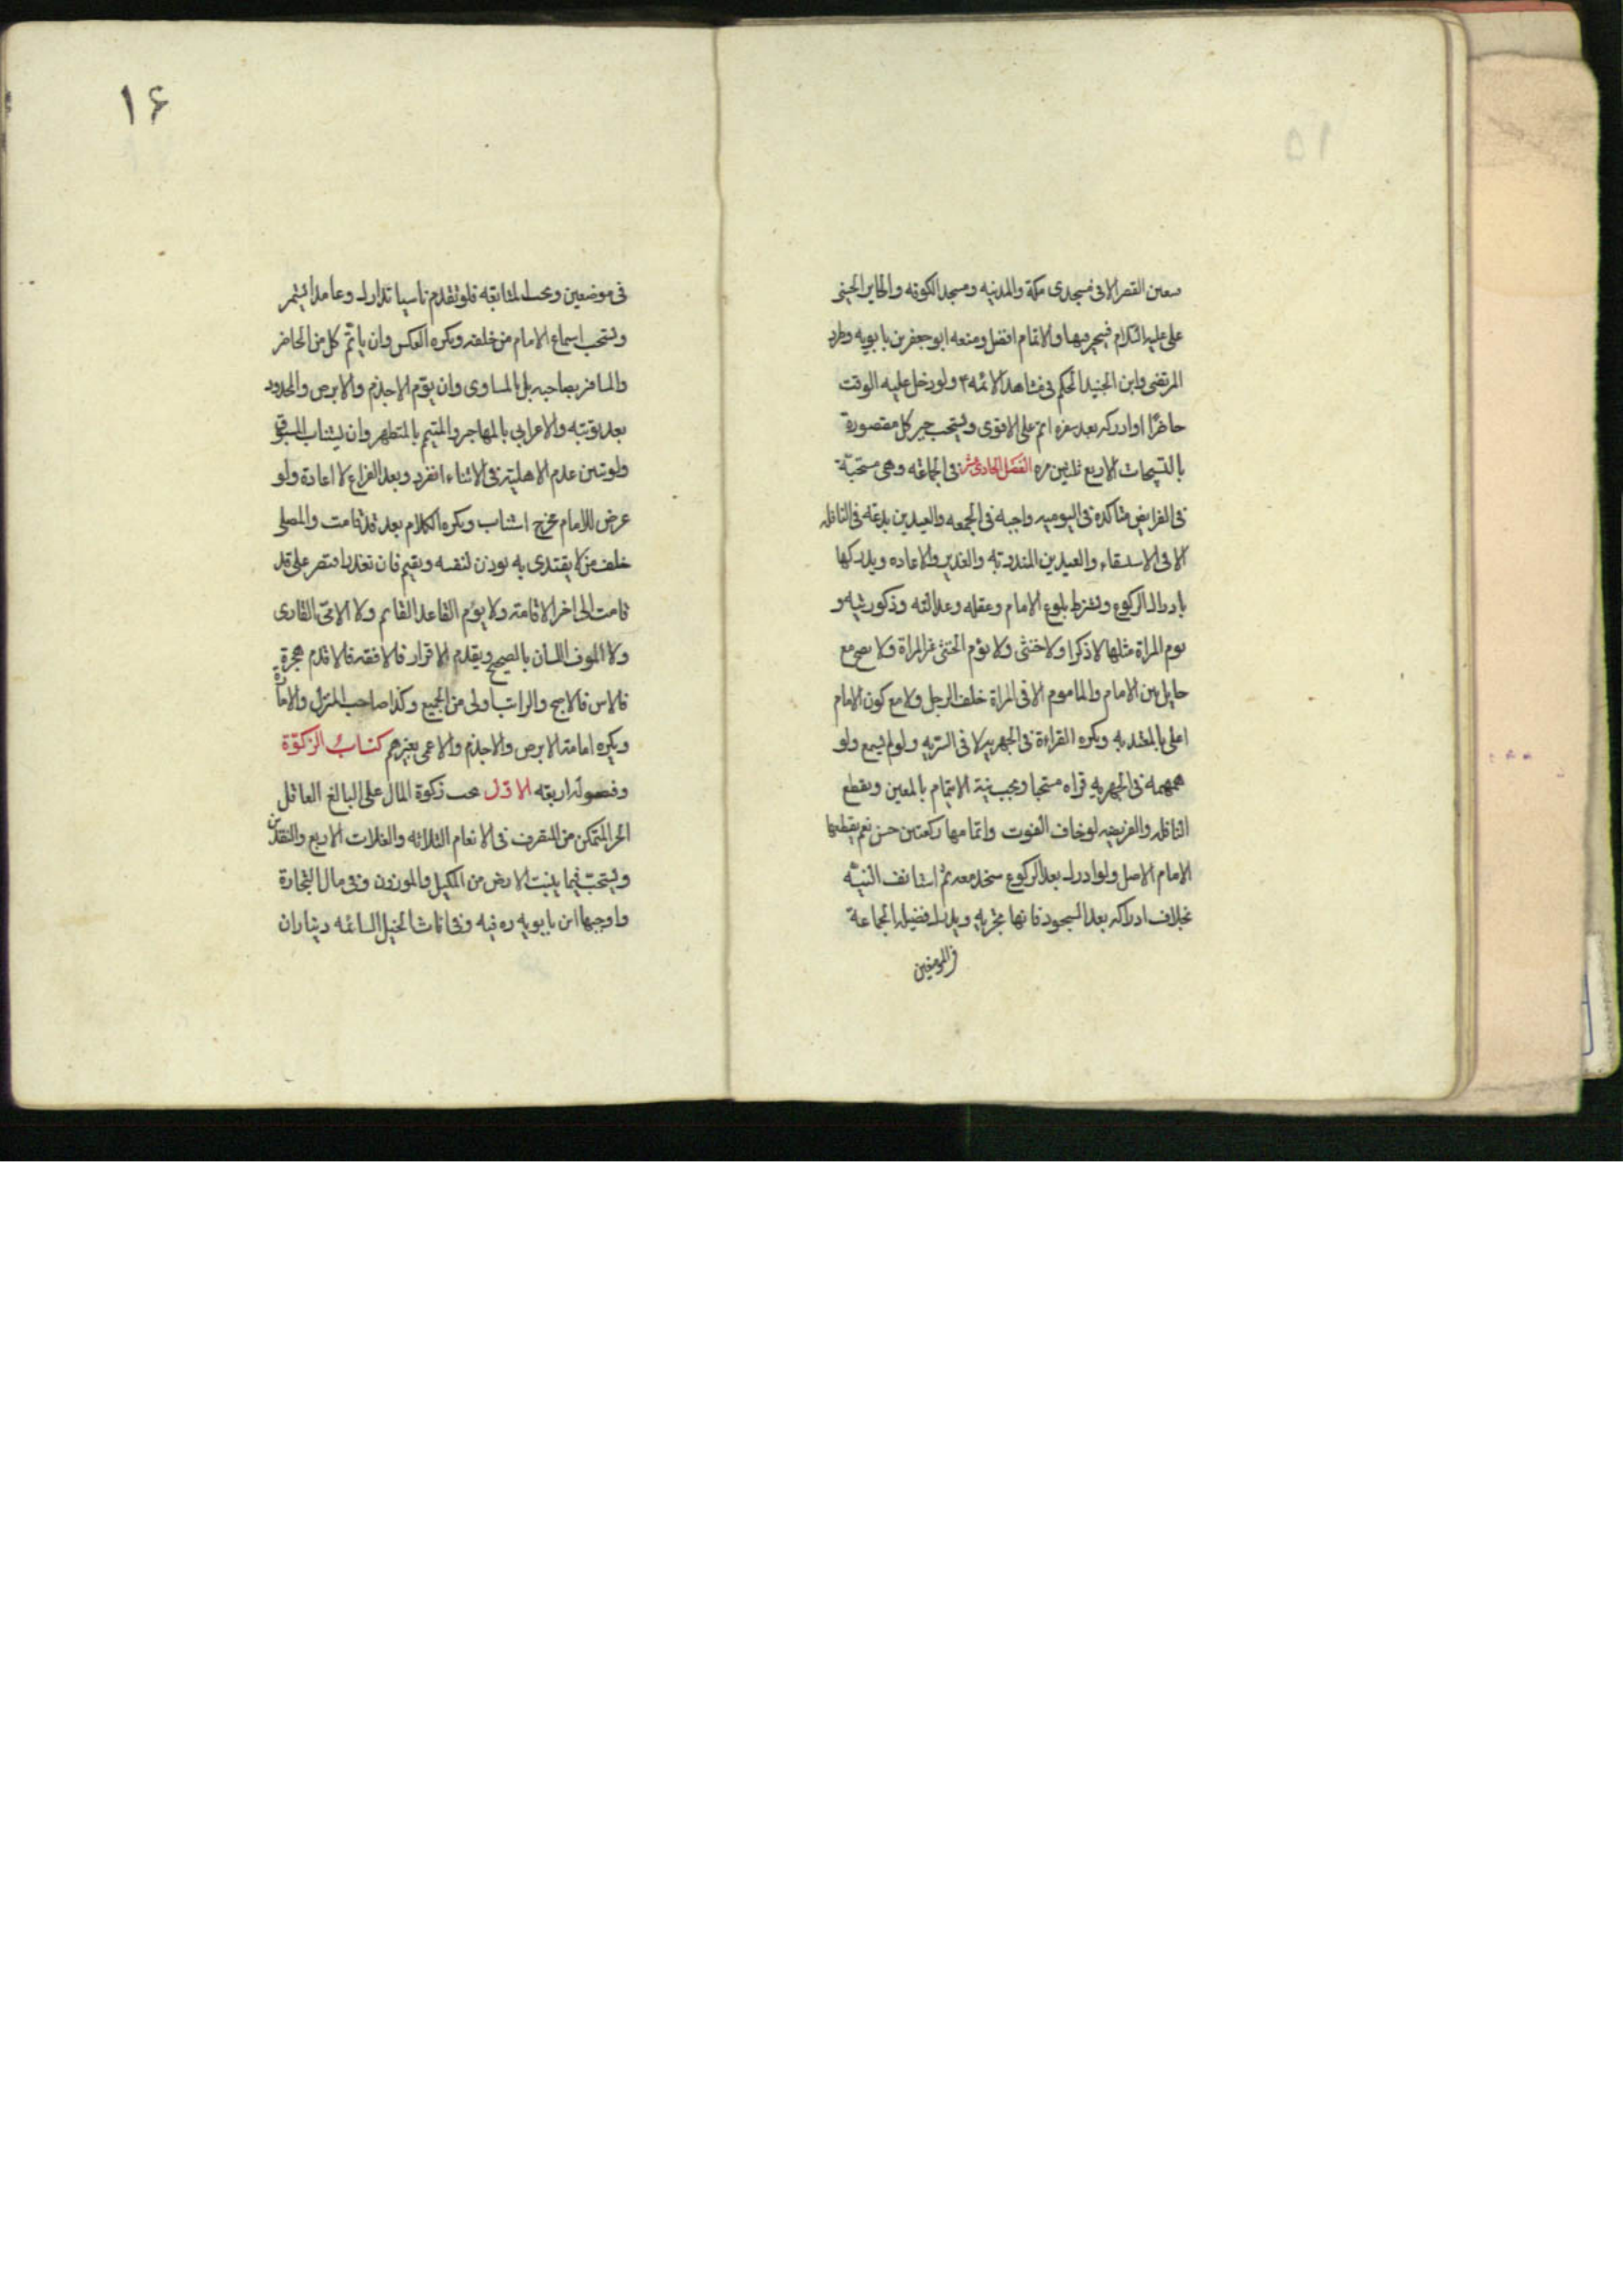 فيتعين القصر الا فى مسجدى مكة والمدينه ومسجد الكوفه والحاير الحسينى
على عليه السلام فيتخير فيها والاتمام افضل ومنعه ابو جعفر بن بابويه وطرد
المرتضى وابن الجنيد الحكم فى مشاهد الائمه ۴ ولو دخل عليه الوقت
حاضرًا او ادركه بعد سفره اتم على الاقوى ويستحب جبر كل مقصورة
بالتسبيحات الاربع ثلثين مره الفصل الحادى عشر فى الجماعه وهى مستحبّة
فى الفرايض متاكده فى اليوميه واجبه فى الجمعه والعيدين بدعه فى النافله
الا فى الاستسقاء والعيدين المندوبه والغدير والاعاده ويدركها
بادراك الركوع ويشترط بلوغ الامام وعقله وعدالته وذكوريته و
يوم المراة مثلها لا ذكرا ولا خنثى ولا يؤم الخنثى غير المراة ولا يصح مع
حايل بين الامام والماموم الا فى المراة خلف الرجل ولا مع كون الامام
اعلى بالمعتد به ويكره القراءة فى الجهريه لا فى السريه ولو لم يسمع ولو
همهمه فى الجهريه قراه مستحبا ويجب نية الايتمام بالمعين ويقطع
النافله والفريضه لو خاف الفوت واتمامها ركعتين حسن نعم يقطعها
الامام الاصل ولو ادرك بعد الركوع سجد معه ثم استانف النيّه
بخلاف ادراكه بعد السجود فانها مجزيه ويدرك فضيله الجماعة
فى الموضعين
۱۶
فى موضعين ويجب المتابعه فلو تقدم ناسيا تدارك وعامدا استمر
ويستحب اسماع الامام من خلفه ويكره العكس وان ياتمّ كل من الحاضر
والمسافر بصاحبه بل بالمساوى وان يؤم الاجذم والابرص والمحدود
بعد توبته والاعرابى بالمهاجر والمتيمم بالمتطهر وان يستناب المسبوق
ولو تبين عدم الاهلية فى الاثناء انفرد وبعد الفراغ لا اعادة ولو
عرض للامام مخرج استناب ويكره الكلام بعد قد قامت والمصلى
خلف من لا يقتدى به يوذن لنفسه ويقيم فان تعذر اقتصر على قد
قامت الى اخر الاقامة ولا يؤم القاعد القايم ولا الامىّ القارى
ولا الموف اللسان بالصحيح ويقدم الاقراء فالافقه فالاقدم هجرة
فالاسن فالاصبح والراتب اولى من الجميع وكذا صاحب المنزل والامارة
ويكره امامة الابرص والاجذم والاعمى بغيرهم كتابُ الزكوٰة
وفصوله اربعه الاوّل يجب زكوة المال على البالغ العاقل
الحر المتمكن من التصرف فى الانعام الثلاثه والغلات الاربع والنقدين
ويستحبّ فيما ينبت الارض من المكيل والموزون وفى مال التجارة
واوجبها ابن بابويه ره فيه وفى اناث الخيل السائمه ديناران